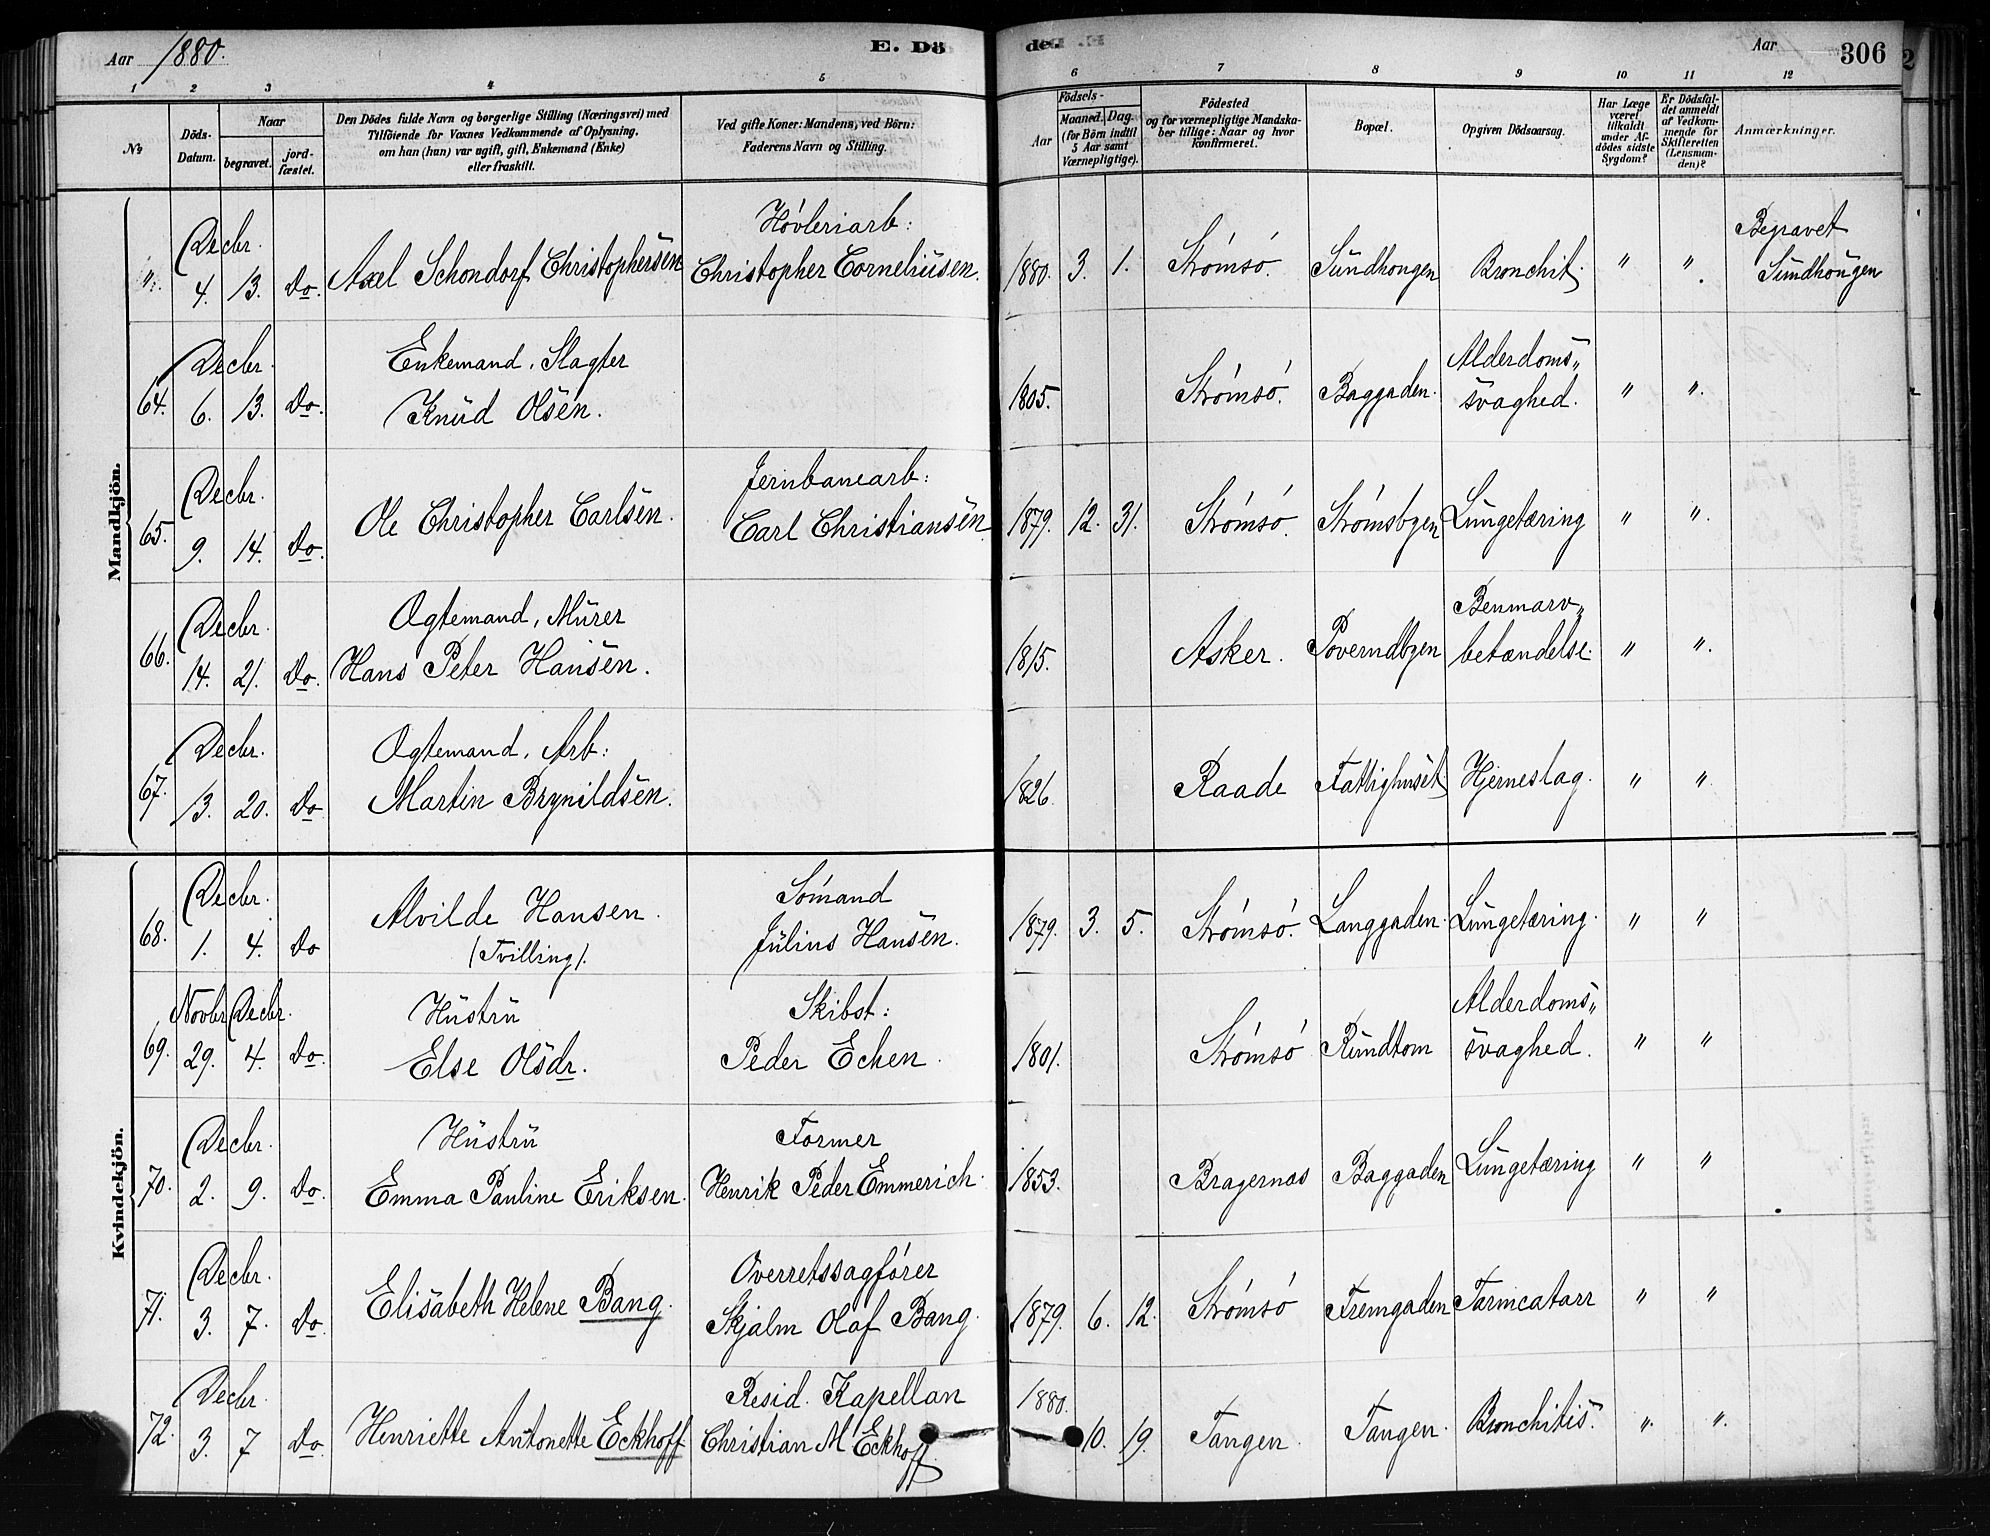 Aar 1880.
E. Dö
de.
Aar
306
1 2 3 4 5 6 7 8 9 10 11 12
No
Döds-
Datum.
Naar
begravet.
jord-
fæstet.
Den Dödes fulde Navn og borgerlige Stilling (Næringsvei) med
Tilföiende for Voxnes Vedkommende af Oplysning,
om han (hun) var ugift, gift, Enkemand (Enke)
eller fraskilt.
Ved gifte Koner: Mandens, ved Börn:
Faderens Navn og Stilling.
Födsels-
Aar
Maaned. Dag.
(for Börn indtil
5 Aar samt
Værnepligtige).
Födested
og for værnepligtige Mandska-
ber tillige: Naar og hvor
konfirmeret.
Bopæl.
Opgiven Dödsaarsag.
Har Læge
været
tilkaldt
under Af-
dödes sidste
Sygdom?
Er Dödsfal-
det anmeldt
af Vedkom-
mende for
Skifteretten
(Lensman-
den)?
Anmærkninger.
Mandkjön.
Decbr. Høvleriarb: Begravet
". 4. 13. Do. Axel Schondorf Christophersen Christopher Corneliüsen. 1880. 3. 1. Strømsø. Sündhougen Bronchit. " ". Sündhoügen
Decbr. Enkemand, Slagter Alderdoms„
64. 6. 13. Do. Knüd Olsen. 1805. Strømsø. Baggaden. svaghed. " ".
Decbr. Jernbanearb:
65. 9. 14. Do. Ole Christopher Carlsen. Carl Christiansen 1879. 12. 31. Strømsø. Strømsbyen Lüngetæring " ".
Decbr. Ægtemand, Mürer Benmarv„
66. 14. 21. Do. Hans Peter Hansen. 1815. Asker. Poverudbyen betændelse. " ".
Decbr. Ægtemand, Arb:
67. 13. 20. Do. Martin Brynildsen. 1826. Raade Fattighuset Hjerneslag. " ".
Kvindekjön.
Decbr. Sømand
68. 1. 4. Do Alvilde Hansen. Jülius Hansen. 1879. 3. 5. Strømsø. Langgaden. Lüngetæring. " "
(Tvilling).
Novbr. Decbr. Hüstrü Skibst: Alderdoms„
69. 29. 4. Do. Else Olsdr. Peder Echen. 1801. Strømsø Ründtom svaghed. " "
Decbr. Hüstrü Former
70. 2. 9. Do. Emma Pauline Eriksen. Henrik Peder Emmerich. 1853. Bragernæs Baggaden Lüngetæring " "
Decbr. Overretssagfører
71. 3. 7. Do. Elisabeth Helene Bang. Skjalm Olaf Bang. 1879. 6. 12. Strømsø Fremgaden Tarmcatarr " "
Decbr. Resid. Kapellan 1880.
72. 3. 7 Do. Henriette Antonette Eckhoff Christian M Eckhoff. 10. 19. Tangen. Tangen. Bronchitis. " ".